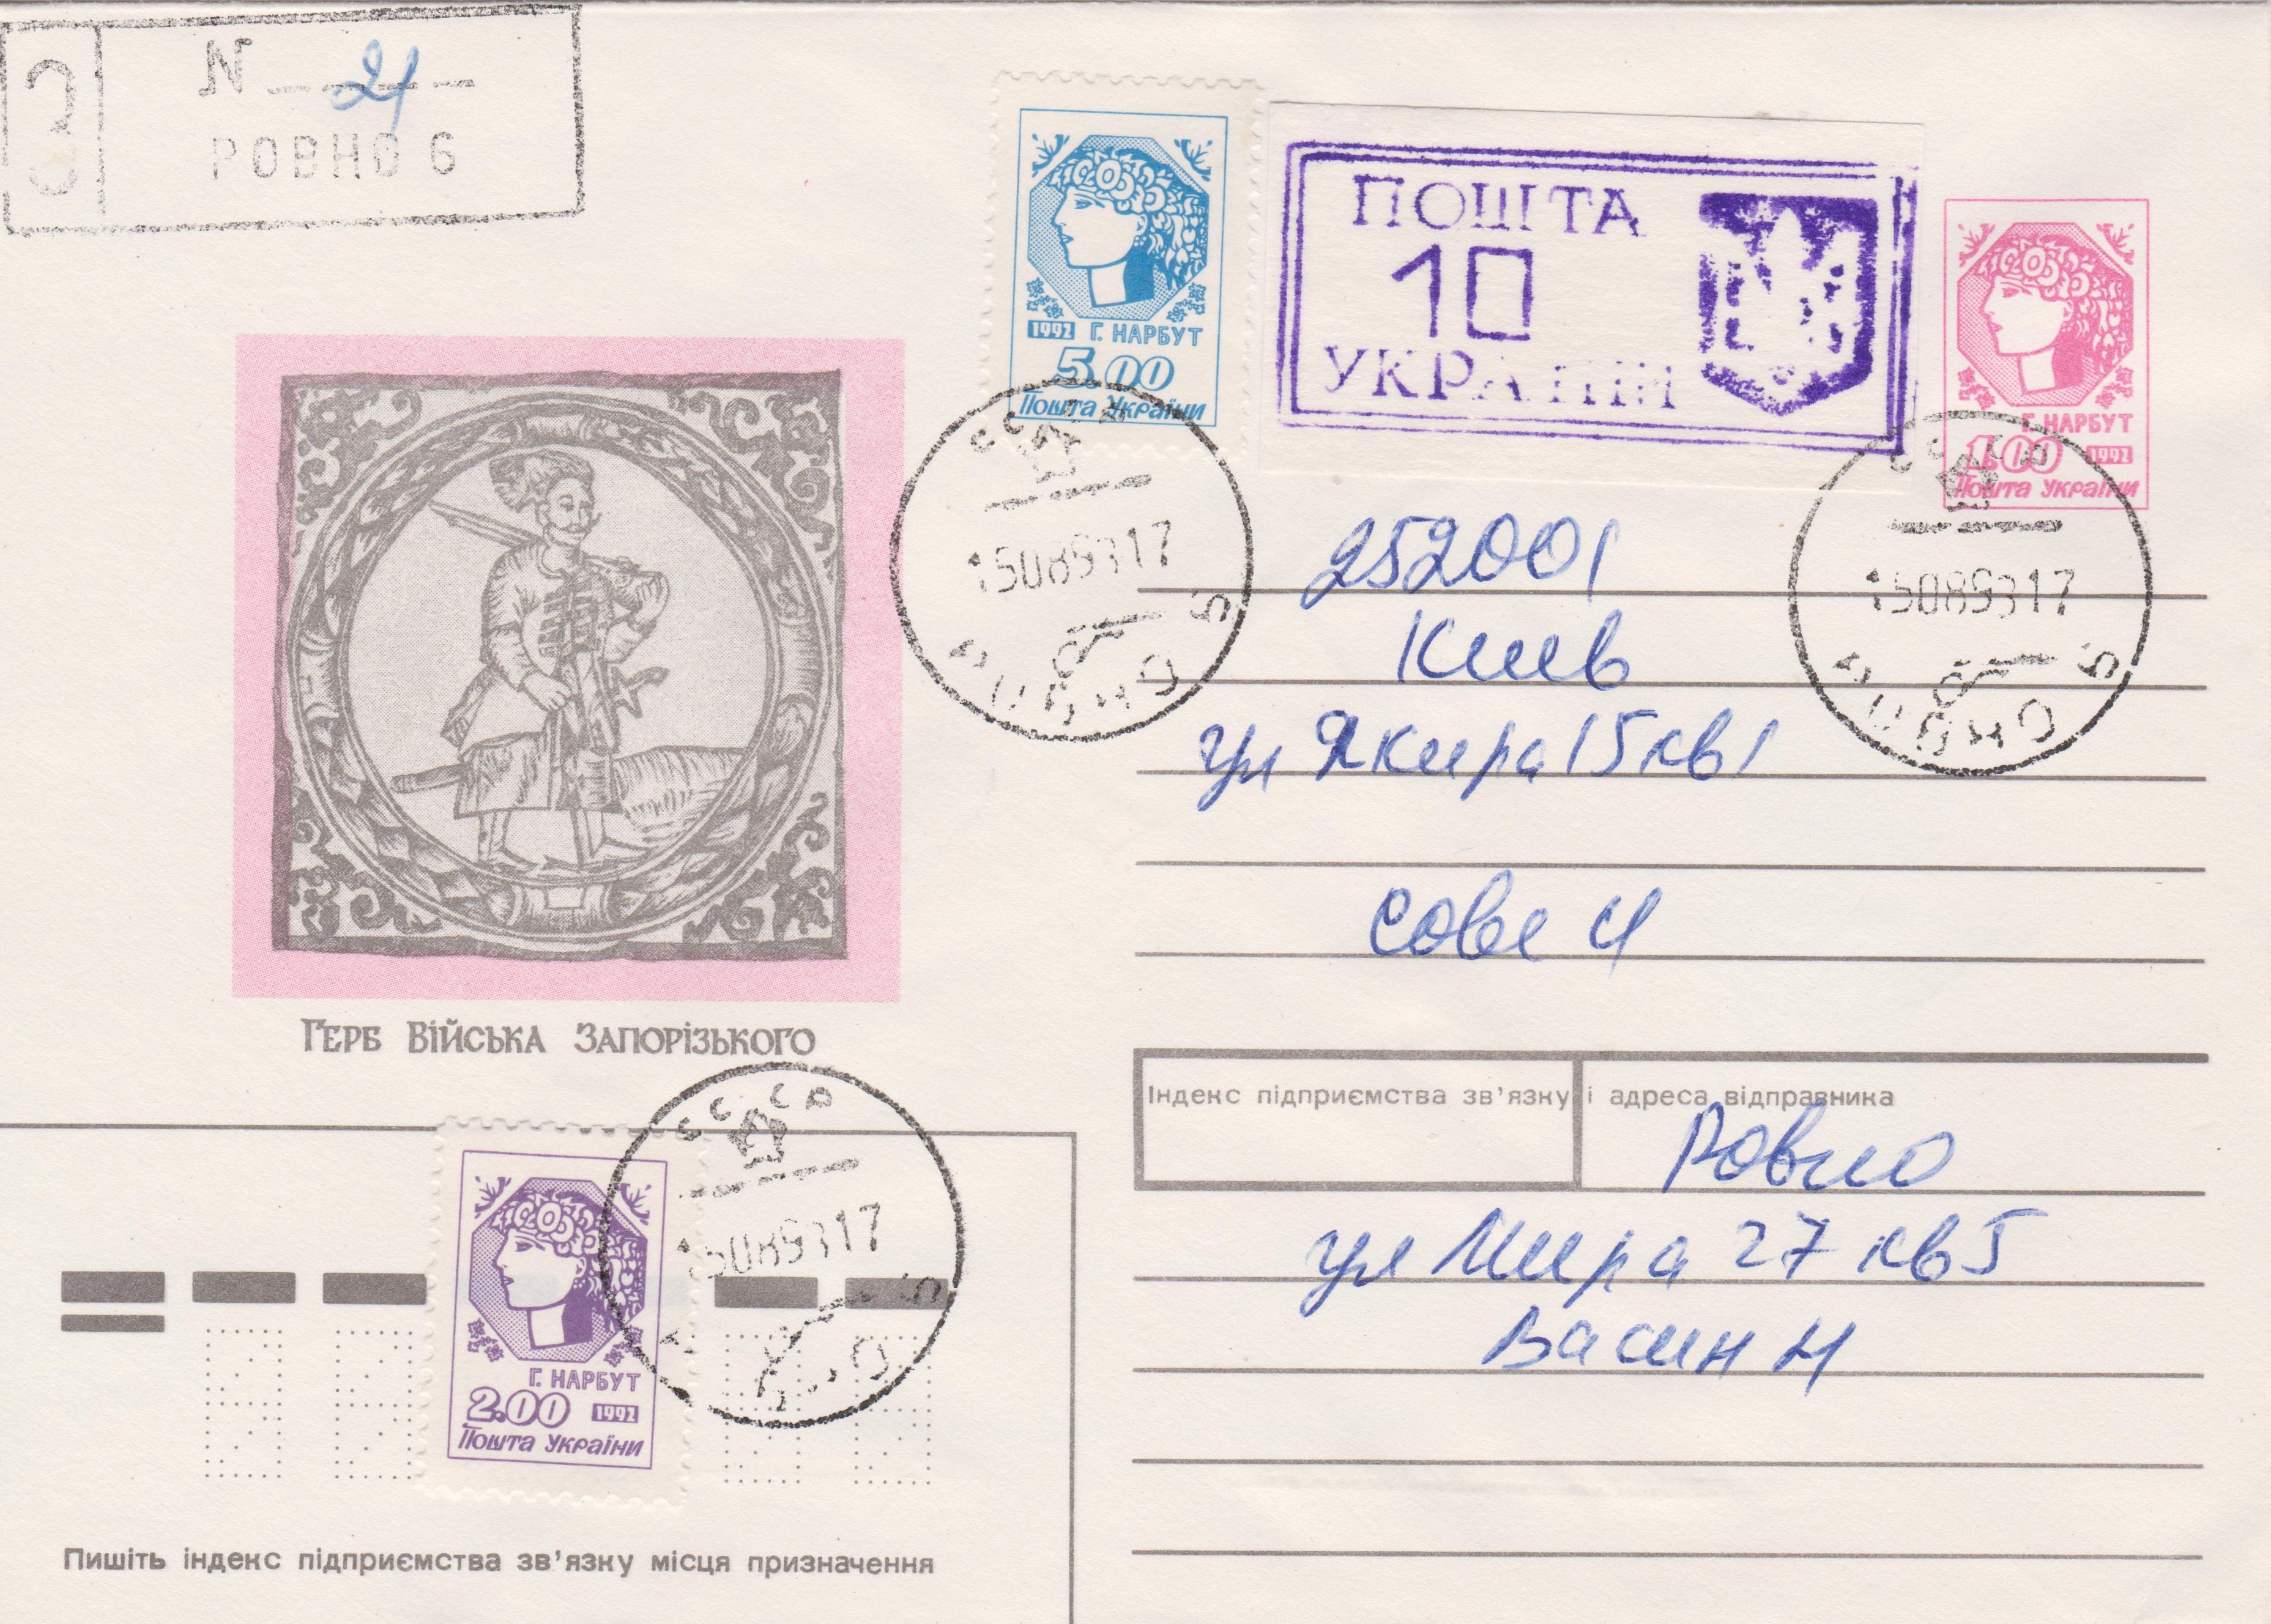 З
N 21
РОВНО 6
1992 Г. НАРБУТ
5.00
Пошта України
ПОШТА
10
УКРАЇНИ
Г. НАРБУТ
1.00 1992
Пошта України
СССР
15089317
СССР
15089317
252001
Киев
ул Якира 15 кв 1
Герб Війська Запорізького
Індекс підприємства зв'язку і адреса відправника
Ровно
ул Мира 27 кв 5
Васин Н
СССР
15089317
Г. НАРБУТ
2.00 1992
Пошта України
Пишіть індекс підприємства зв'язку місця призначення